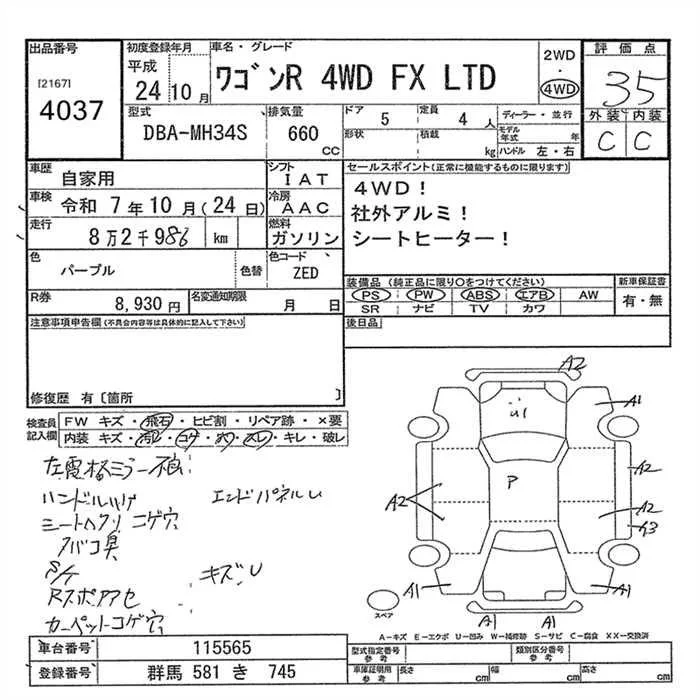 出品番号
[2167]
4037
初度登録年月
平成
24 10 月
車名・グレード
ワゴンR 4WD FX LTD
2WD
・
4WD
評価点
3.5
外装 内装
C C
型式
DBA-MH34S
排気量
660
CC
ドア 5
定員 4 人
形状
積載 kg
ディーラー・並行
モデル年式 年
ハンドル 左・右
車歴
自家用
シフト
IAT
車検 令和 7 年 10 月(24 日)
冷房
AAC
走行
8 万 2 千 986 km
燃料
ガソリン
色
パープル
色替
色コード
ZED
R券
8,930 円
名変通知期限
月 日
セールスポイント(正常に機能するものに限ります)
4WD!
社外アルミ!
シートヒーター!
装備品 (純正品に限り○をつけてください)
PS PW ABS エアB AW
SR ナビ TV カワ
新車保証書
有・無
後日品
注意事項申告欄(不具合内容等は具体的に記入して下さい)
修復歴 有〔箇所 〕
検査員記入欄
FW キズ・飛石・ヒビ割・リペア跡・×要
内装 キズ・汚レ・コゲ・穴・スレ・キレ・破レ
左電格ミラー不良
ハンドルハゲ エンドパネルU
シートヘタリ コゲ穴
タバコ臭
S/K キズ、U
Rスポアアセ
カーペットコゲ穴
A2
A1
U1
A2
P
A2
A2
A3
A1
A1
A1
A1
スペア
A-キズ E-エクボ U-凹み W-補修跡 S-サビ C-腐食 XX-交換済
車台番号 115565
登録番号 群馬 581 き 745
型式指定番号
参考
類別区分番号
参考
車庫証明用
参考
長さ cm
幅 cm
高さ cm